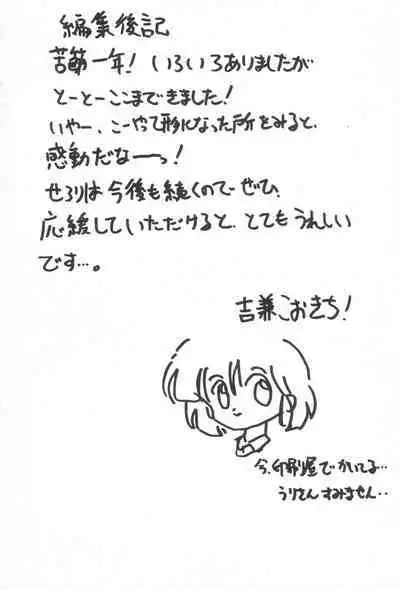 編集後記
苦節一年!いろいろありましたが
とーとーここまできました!
いやー、こーやって形になった所をみると、
感動だなーっ!
せろりは今後も続くのでぜひ、
応援していただけると、とてもうれしい
です…。
吉兼こおきち!
今、印刷屋でかいてる…
うりさんすみません‥